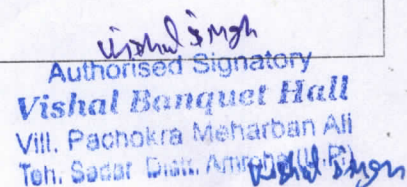 Vishal Singh
Authorised Signatory
Vishal Banquet Hall
Vill. Pachokra Meharban Ali
Teh. Sadar Distt. Amroha (U.P.)
Vishal Singh